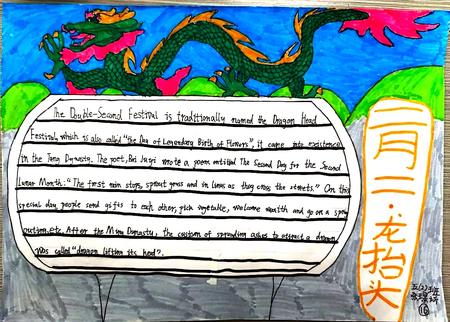 The Double-Second Festival is traditionally named the Dragon Head
Festival, which is also called "the Day of Legendary Birth of Flowers", it came into existence
in the Tang Dynasty. The poet, Bai Juyi wrote a poem entitled The Second Day for the Second
Lunar Month: "The first rain stops, sprout grass and in lines as they cross the streets." On this
special day, people send gifts to each other, pick vegetable, welcome wealth and go on a spring
outing, etc. After the Ming Dynasty, the custom of spreading ashes to attract a dragon
was called "dragon lifting its head".
二月二·龙抬头
五(2)班
16